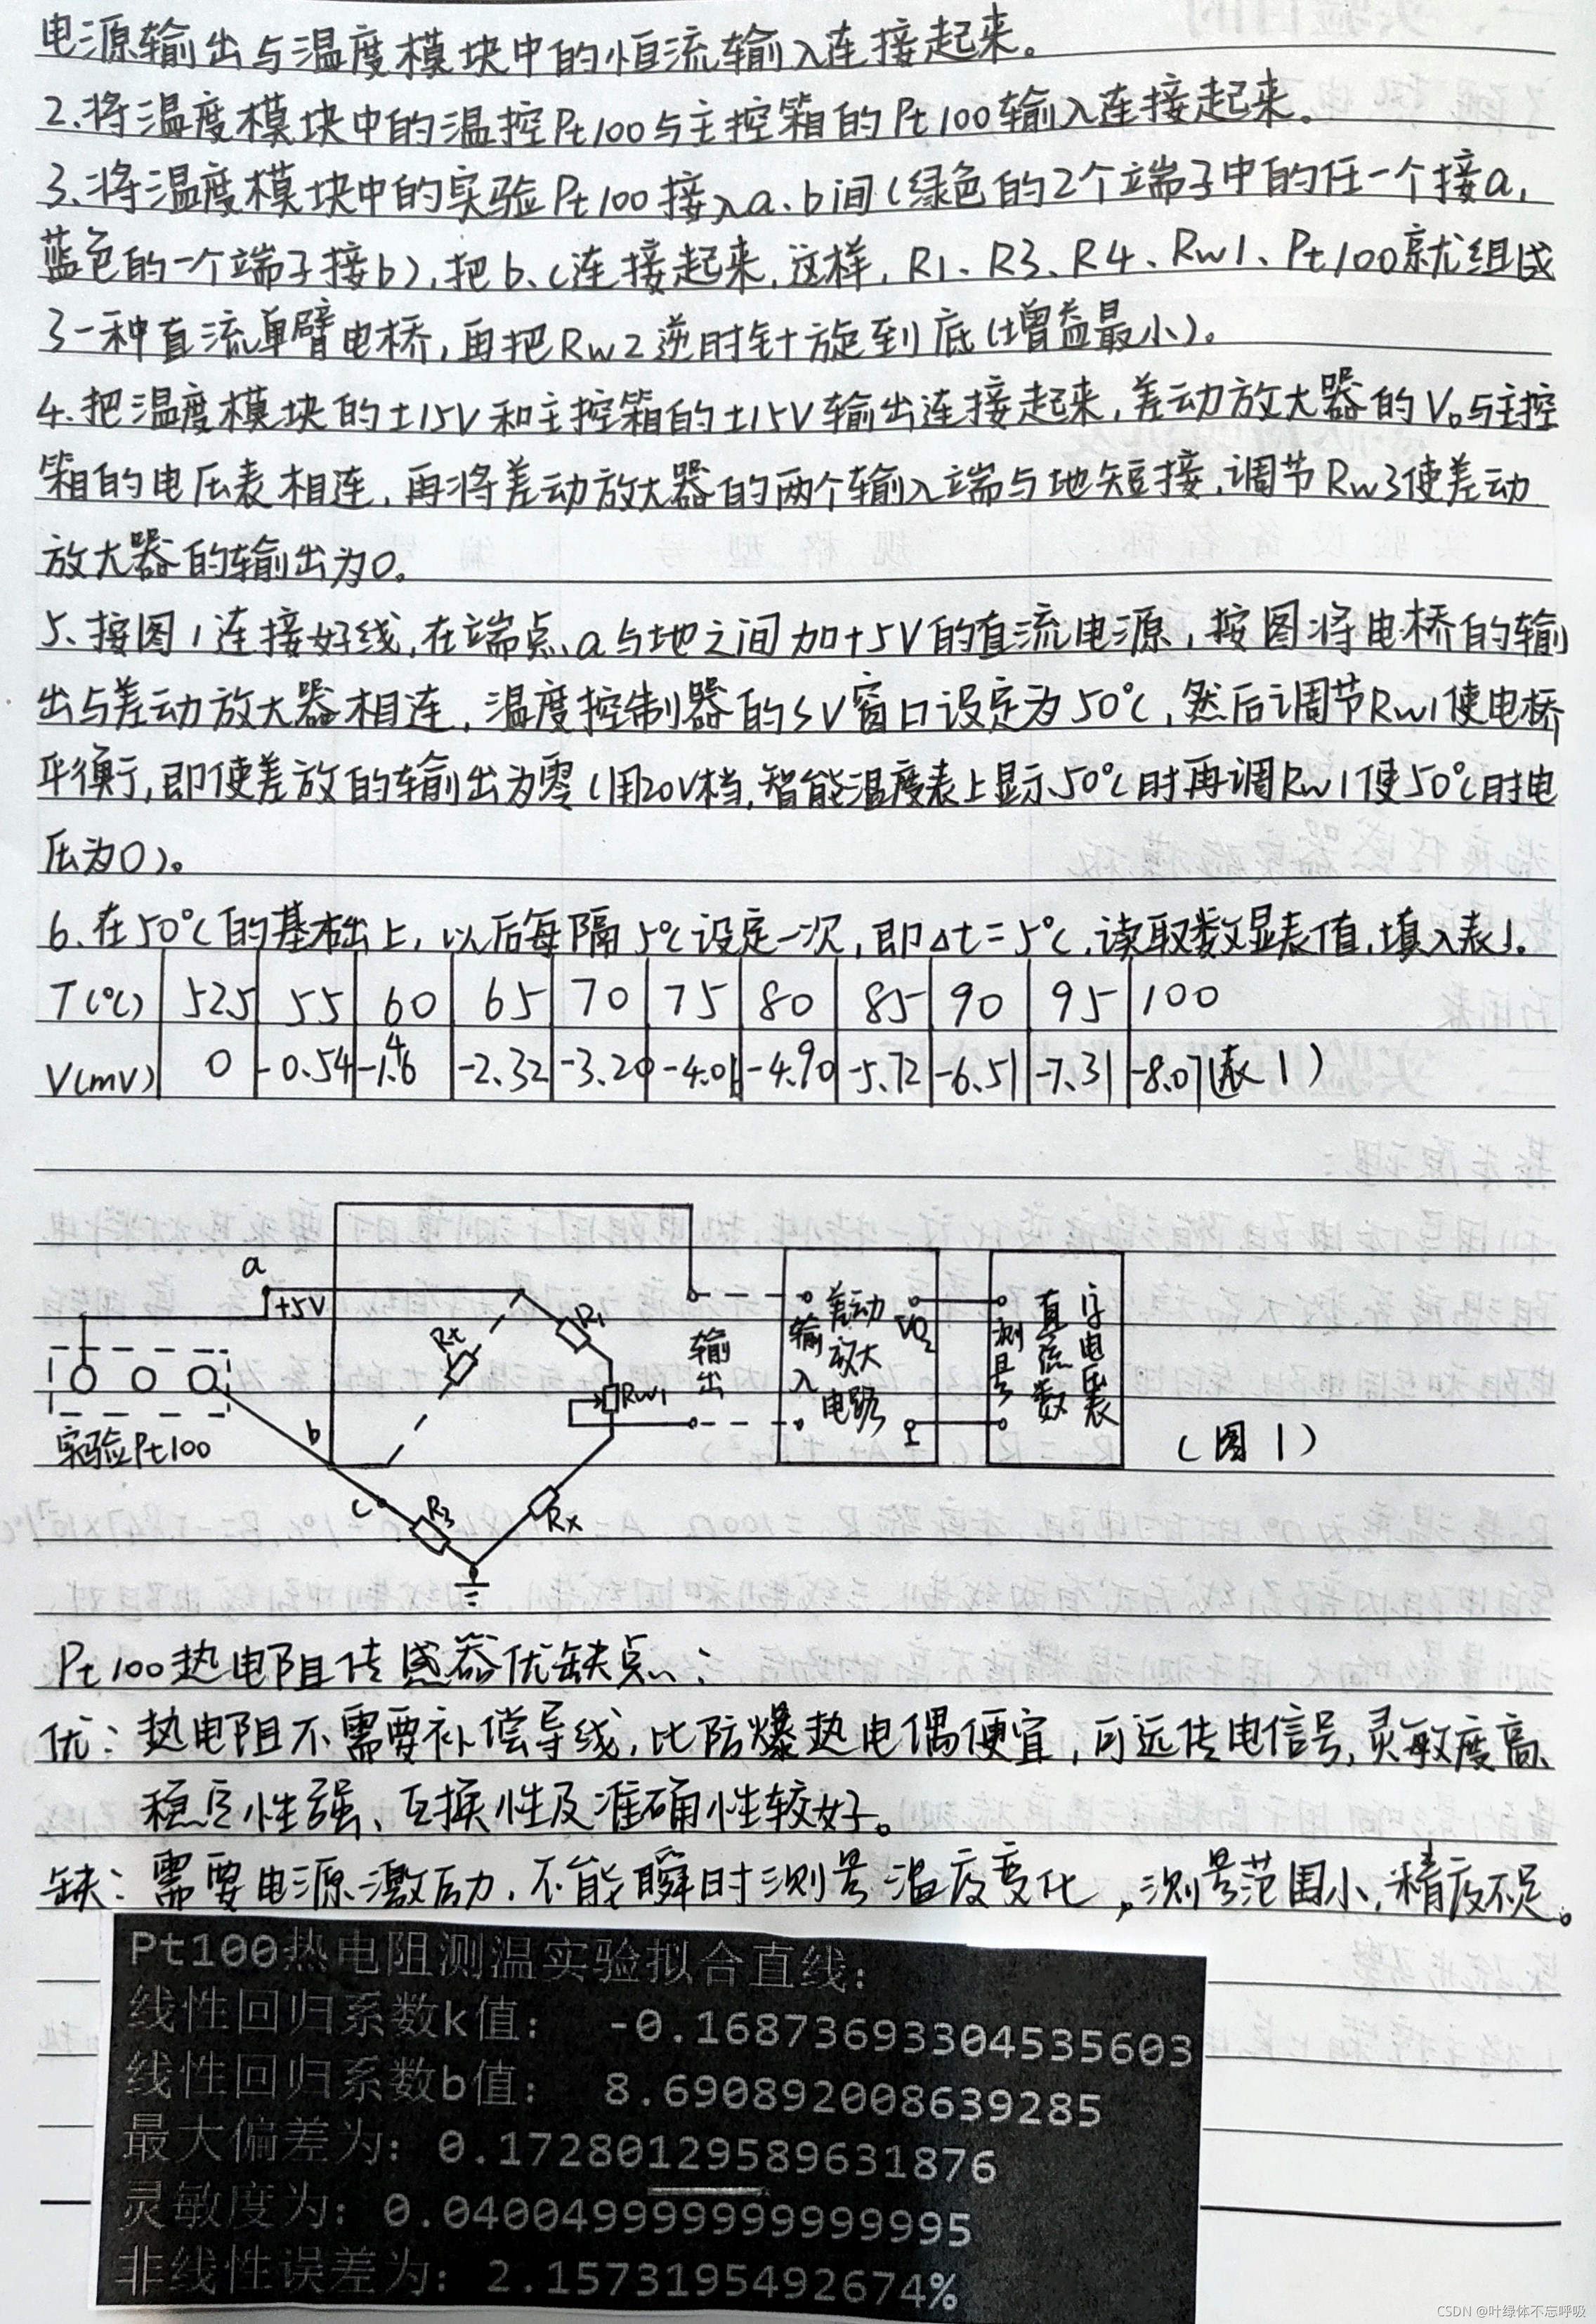 电源输出与温度模块中的恒流输入连接起来。
2.将温度模块中的温控Pt100与主控箱的Pt100输入连接起来。
3.将温度模块中的实验Pt100接入a、b间(绿色的2个端子中的任一个接a,
蓝色的一个端子接b),把b、c连接起来,这样,R1、R3、R4、Rw1、Pt100就组成
了一种直流单臂电桥,再把Rw2逆时针旋到底(增益最小)。
4.把温度模块的±15V和主控箱的±15V输出连接起来,差动放大器的V。与主控
箱的电压表相连,再将差动放大器的两个输入端与地短接,调节Rw3使差动
放大器的输出为0。
5、按图1连接好线,在端点a与地之间加+5V的直流电源,按图将电桥的输
出与差动放大器相连,温度控制器的SV窗口设定为50℃,然后调节Rw1使电桥
平衡,即使差放的输出为零(用20V档,智能温度表上显示50℃时再调Rw1使50℃时电
压为0)。
6、在50℃的基础上,以后每隔5℃设定一次,即Δt=5℃,读取数显表值,填入表1。
T(℃) 52.5 55 60 65 70 75 80 85 90 95 100
V(mV) 0 -0.54 -1.46 -2.32 -3.20 -4.01 -4.90 -5.72 -6.51 -7.31 -8.07 (表1)
a
+5V
Rt
R1
Rw1
输出
输入
差动放大电路
VO2
测量
直流数字电压表
实验Pt100
b
c
R3
Rx
(图1)
Pt100热电阻传感器优缺点:
优:热电阻不需要补偿导线,比防爆热电偶便宜,可远传电信号,灵敏度高、
稳定性强、互换性及准确性较好。
缺:需要电源激励,不能瞬时测量温度变化,测量范围小,精度不足。
Pt100热电阻测温实验拟合直线:
线性回归系数k值: -0.16873693304535603
线性回归系数b值: 8.690892008639285
最大偏差为: 0.17280129589631876
灵敏度为: 0.040049999999999995
非线性误差为: 2.1573195492674%
CSDN @叶绿体不忘呼吸